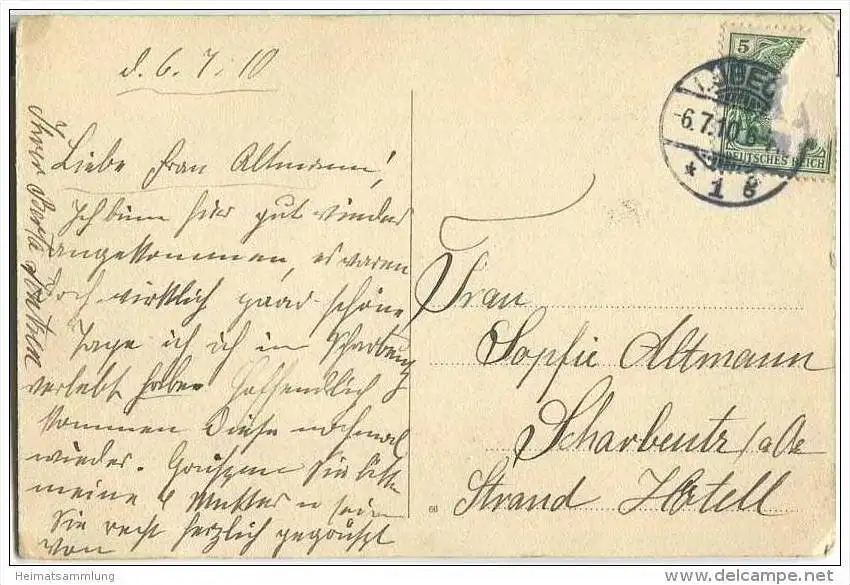 d. 6.7.10
Liebe Frau Altmann!
Ich bin hier gut wieder
angekommen, es waren
doch wirklich paar schöne
Tage ich ich in Scharbeutz
verlebt habe. Hoffendlich
kommen Diese nochmal
wieder. Grüssen Sie bitte
meine Mutter u sein
Sie recht herzlich gegrüsst
von
Ihrer Berta
5
LÜBECK
-6.7.10.6-7
DEUTSCHES REICH
* 1 g
Frau
Sophie Altmann
Scharbeutz a/Os
Strand Hotell
66
Heimatsammlung
http://www.delcampe.net